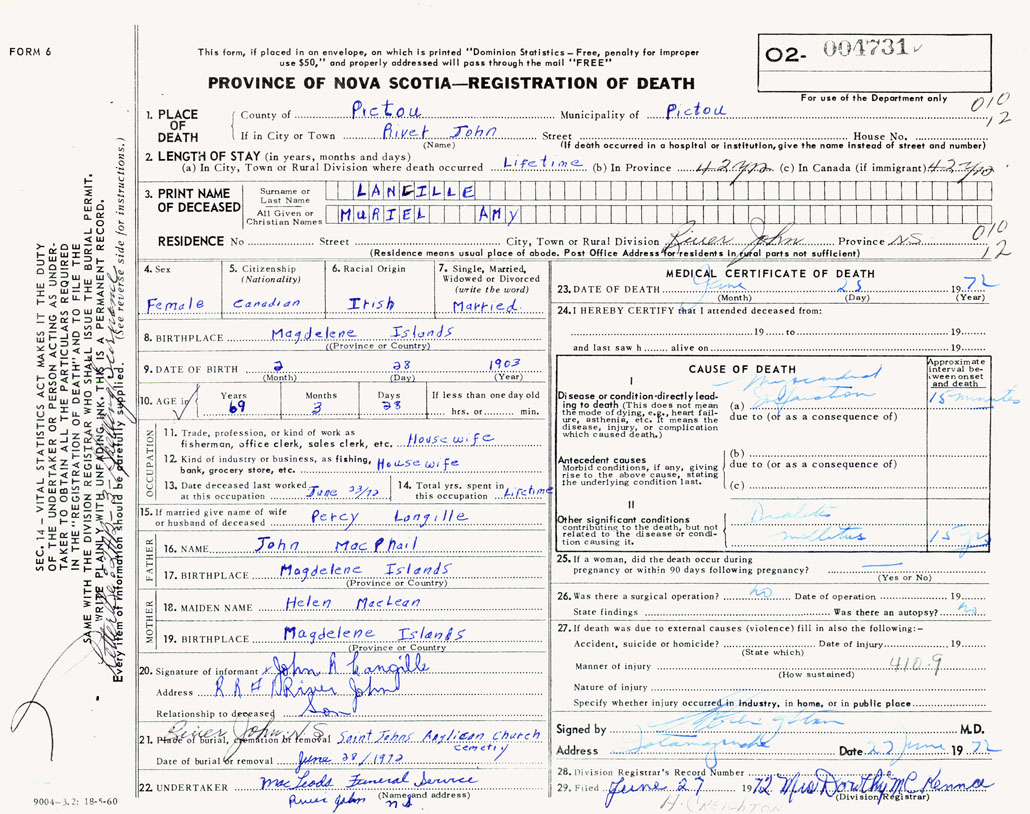 FORM 6
This form, if placed in an envelope, on which is printed "Dominion Statistics – Free, penalty for improper
use $50," and properly addressed will pass through the mail "FREE"
PROVINCE OF NOVA SCOTIA—REGISTRATION OF DEATH
O2- 004731
For use of the Department only
010
12
1. PLACE OF DEATH
County of Pictou Municipality of Pictou
If in City or Town River John Street House No.
(Name) (If death occurred in a hospital or institution, give the name instead of street and number)
2. LENGTH OF STAY (in years, months and days)
(a) In City, Town or Rural Division where death occurred Lifetime (b) In Province 42 yrs (c) In Canada (if immigrant) 42 yrs
3. PRINT NAME OF DECEASED
Surname or Last Name LANGILLE
All Given or Christian Names MURIEL AMY
RESIDENCE No Street City, Town or Rural Division River John Province N.S.
010
12
(Residence means usual place of abode. Post Office Address for residents in rural parts not sufficient)
4. Sex
Female
5. Citizenship
(Nationality)
Canadian
6. Racial Origin
Irish
7. Single, Married,
Widowed or Divorced
(write the word)
Married.
8. BIRTHPLACE Magdelene Islands
((Province or Country)
9. DATE OF BIRTH 2 28 1903
(Month) (Day) (Year)
10. AGE in
Years Months Days If less than one day old
69 3 28 hrs. or min.
OCCUPATION
11. Trade, profession, or kind of work as
fisherman, office clerk, sales clerk, etc. House wife
12. Kind of industry or business, as fishing,
bank, grocery store, etc. House wife
13. Date deceased last worked
at this occupation June 23/72
14. Total yrs. spent in
this occupation Lifetime
15. If married give name of wife
or husband of deceased Percy Langille
FATHER
16. NAME John MacPhail
17. BIRTHPLACE Magdelene Islands
(Province or Country)
MOTHER
18. MAIDEN NAME Helen MacLean
19. BIRTHPLACE Magdelene Islands
(Province or Country)
20. Signature of informant x John R Langille
Address R R # River John
Relationship to deceased Son
River John N.S.
21. Place of burial, cremation or removal Saint Johns Anglican Church
cemetry
Date of burial or removal June 28/1972
22. UNDERTAKER MacLeods Funeral Service
(Name and address)
River John N.S.
9004–3.2: 18-5-60
MEDICAL CERTIFICATE OF DEATH
23. DATE OF DEATH June 25 1972
(Month) (Day) (Year)
24. I HEREBY CERTIFY that I attended deceased from:
19 to 19
and last saw h alive on 19
CAUSE OF DEATH
Approximate interval between onset and death
I
Disease or condition directly leading to death (This does not mean the mode of dying, e.g., heart failure, asthenia, etc. It means the disease, injury, or complication which caused death.)
(a) Myocardial Infarction 15 minutes
due to (or as a consequence of)
Antecedent causes
Morbid conditions, if any, giving rise to the above cause, stating the underlying condition last.
(b)
due to (or as a consequence of)
(c)
II
Other significant conditions
contributing to the death, but not related to the disease or condition causing it.
Diabetes
mellitus 15 yrs
25. If a woman, did the death occur during
pregnancy or within 90 days following pregnancy?
(Yes or No)
26. Was there a surgical operation? no Date of operation 19
State findings Was there an autopsy? no
27. If death was due to external causes (violence) fill in also the following:–
Accident, suicide or homicide? Date of injury 19
(State which)
Manner of injury 410.9
(How sustained)
Nature of injury
Specify whether injury occurred in industry, in home, or in public place
Signed by M.D.
Address Tatamagouche Date 27 June 1972
28. Division Registrar's Record Number
29. Filed June 27 1972 Mrs Dorothy McKenna
(Division Registrar)
H. CREIGHTON
SEC. 14 – VITAL STATISTICS ACT MAKES IT THE DUTY
OF THE UNDERTAKER OR PERSON ACTING AS UNDER-
TAKER TO OBTAIN ALL THE PARTICULARS REQUIRED
IN THE "REGISTRATION OF DEATH" AND TO FILE THE
SAME WITH THE DIVISION REGISTRAR WHO SHALL ISSUE THE BURIAL PERMIT.
WRITE PLAINLY WITH UNFADING INK. THIS IS A PERMANENT RECORD.
Every item of information should be carefully supplied. (See reverse side for instructions.)